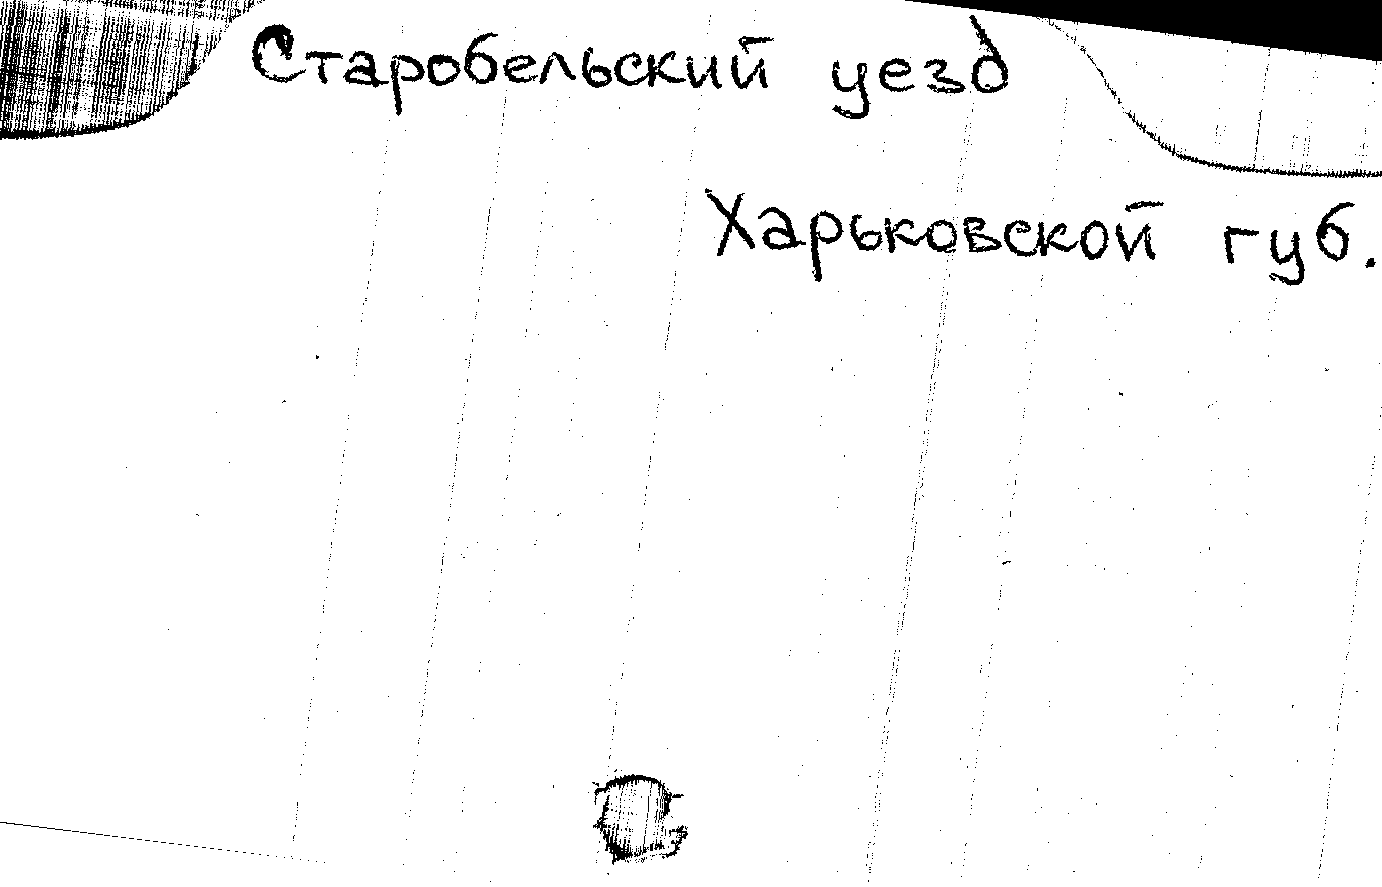 Старобельский уезд
Харьковской губ.